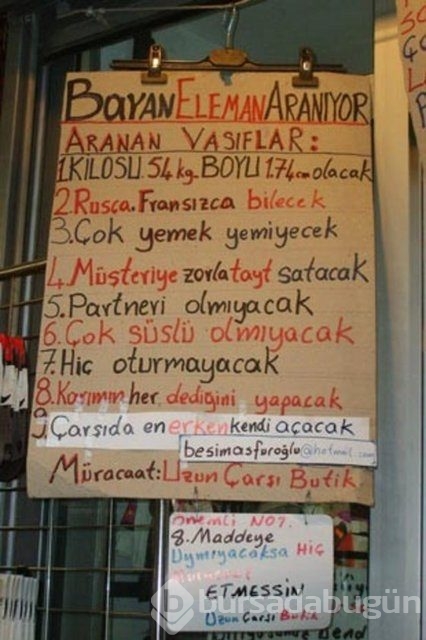 BAYAN ELEMAN ARANIYOR
ARANAN VASIFLAR:
1.KİLOSU.54kg.BOYU 1.74cm olacak
2.Rusça.Fransızca bilecek
3.Çok yemek yemiyecek
4.Müşteriye zorla tayt satacak
5.Partneri olmıyacak
6.Çok süslü olmıyacak
7.Hiç oturmayacak
8.Karımın her dediğini yapacak
9 Çarşıda en erken kendi açacak
besimasfuroğlu@hotmail.com
Müracaat: Uzun Çarşı Butik.
Önemli NOT.
8.Maddeye
Uymıyacaksa Hiç
ETMESSİN
Uzun Çarşı Butik
bursadabugün